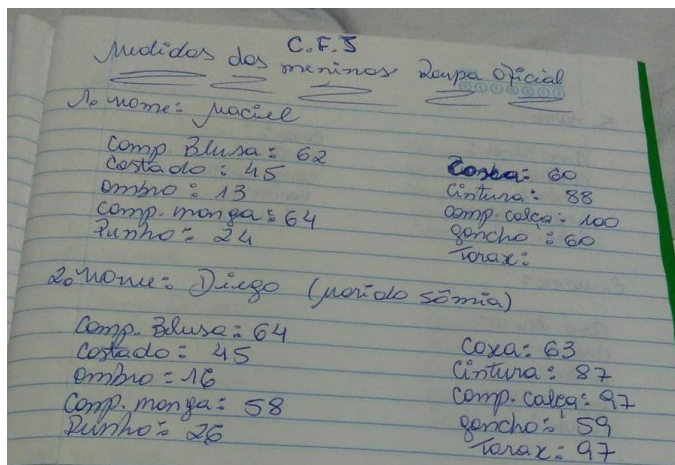 C.F.S
Medidas dos meninos Roupa Oficial
1º nome: Maciel
Comp. Blusa: 62
Costado: 45
ombro: 13
Comp. manga: 64
Punho: 24
Coxa: 60
Cintura: 88
Comp. calça: 100
gancho: 60
Torax:
2º nome: Diego (marido Sômia)
Comp. Blusa: 64
Costado: 45
ombro: 16
Comp. manga: 58
Punho: 26
Coxa: 63
Cintura: 87
Comp. calça: 97
gancho: 59
Torax: 97